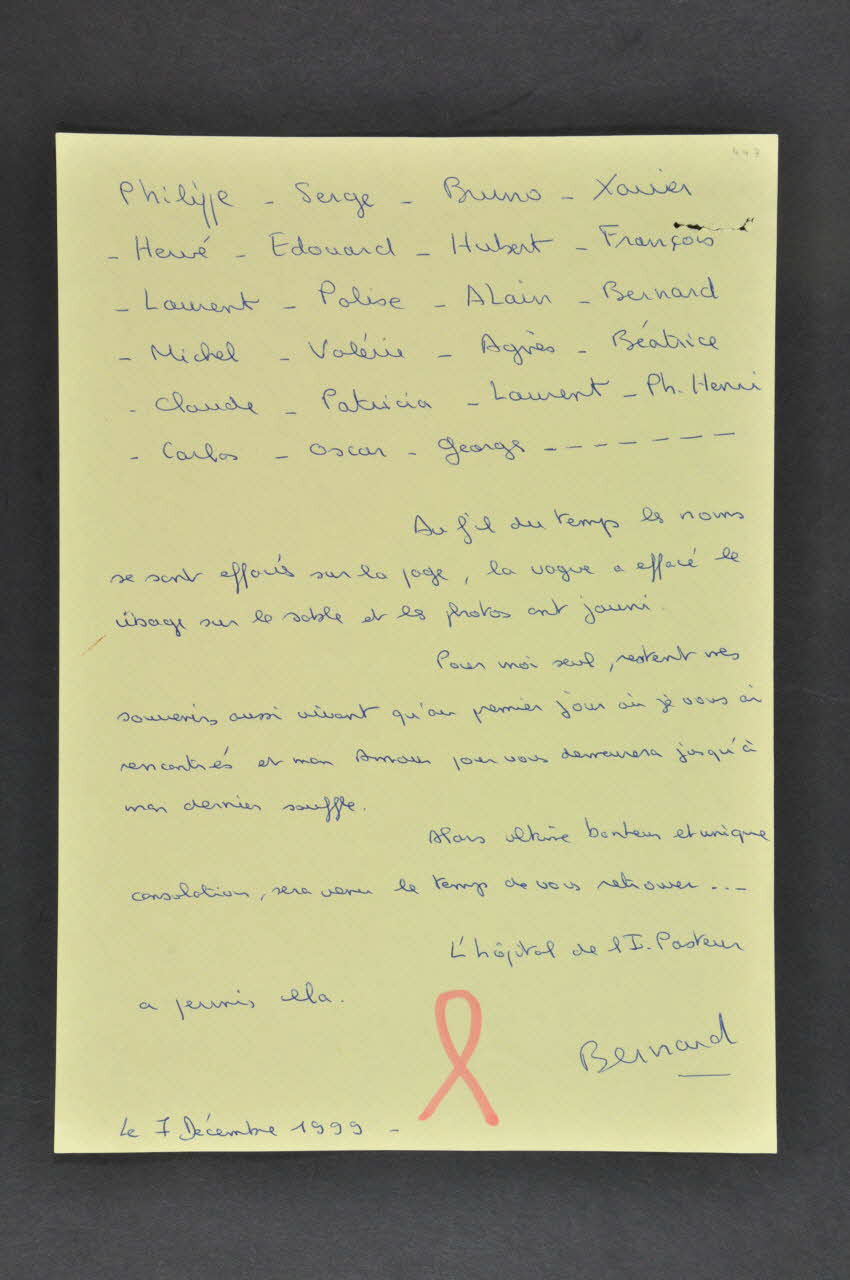 447
Philippe - Serge - Bruno - Xavier
- Hervé - Edouard - Hubert - François
- Laurent - Polise - ALain - Bernard
- Michel - Valérie - Agnès - Béatrice
- Claude - Patricia - Laurent - Ph. Henri
- Carlos - Oscar - George - - - - - - -
Au fil du temps les noms
se sont effacés sur la page, la vague a effacé le
visage sur le sable et les photos ont jauni.
Pour moi seul, restent mes
souvenirs aussi vivant qu'au premier jour où je vous ai
rencontrés et mon Amour pour vous demeurera jusqu'à
mon dernier souffle.
Alors ultime bonheur et unique
consolation, sera venu le temps de vous retrouver ...
L'hôpital de l'I. Pasteur
a permis cela.
Bernard
Le 7 Décembre 1999 -